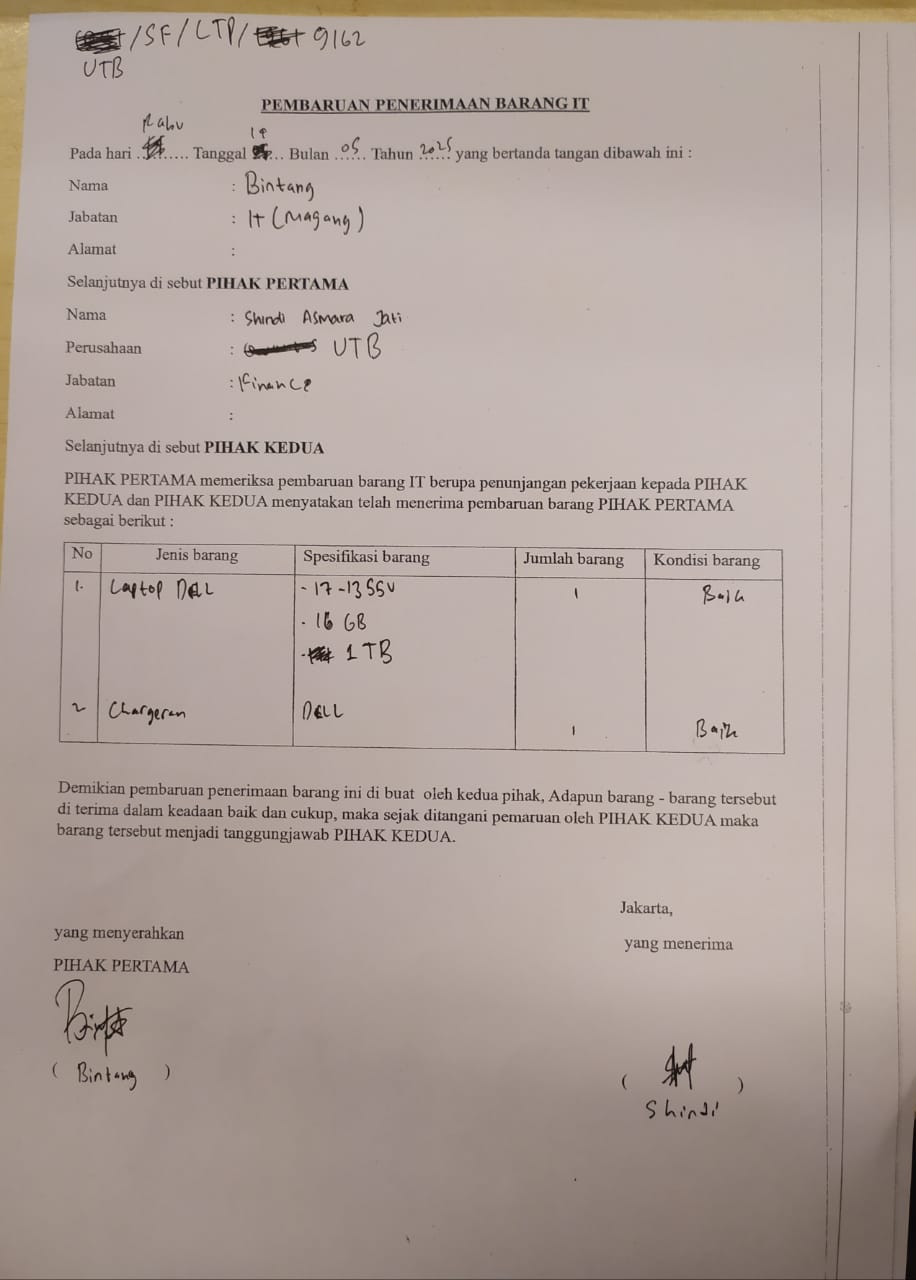 /SF/LTP/ 9162
UTB
PEMBARUAN PENERIMAAN BARANG IT
Pada hari ..Rabu...... Tanggal ... Bulan ..05.. Tahun ..2025.. yang bertanda tangan dibawah ini :
Nama : Bintang
Jabatan : It (Magang)
Alamat :
Selanjutnya di sebut PIHAK PERTAMA
Nama : Shindi Asmara Jati
Perusahaan : UTB
Jabatan : Finance
Alamat :
Selanjutnya di sebut PIHAK KEDUA
PIHAK PERTAMA memeriksa pembaruan barang IT berupa penunjangan pekerjaan kepada PIHAK
KEDUA dan PIHAK KEDUA menyatakan telah menerima pembaruan barang PIHAK PERTAMA
sebagai berikut :
No Jenis barang Spesifikasi barang Jumlah barang Kondisi barang
1. Laptop DELL - 17-1355U 1 Baik
- 16 GB
- 1 TB
2 Chargeran DELL 1 Baik
Demikian pembaruan penerimaan barang ini di buat oleh kedua pihak, Adapun barang - barang tersebut
di terima dalam keadaan baik dan cukup, maka sejak ditangani pemaruan oleh PIHAK KEDUA maka
barang tersebut menjadi tanggungjawab PIHAK KEDUA.
Jakarta,
yang menyerahkan yang menerima
PIHAK PERTAMA
( Bintang ) ( )
Shindi